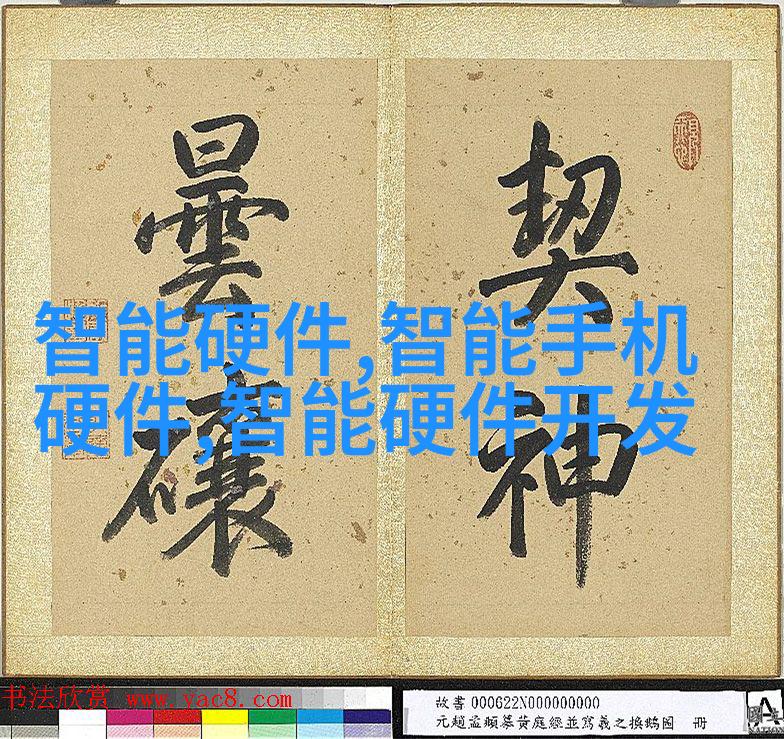 契神
曇礲
智能硬件,智能手机
硬件,智能硬件开发
书法欣赏 www.yac8.com
故書000622N000000000
元趙孟頫摹黃庭經並寫羲之換鵝圖 冊